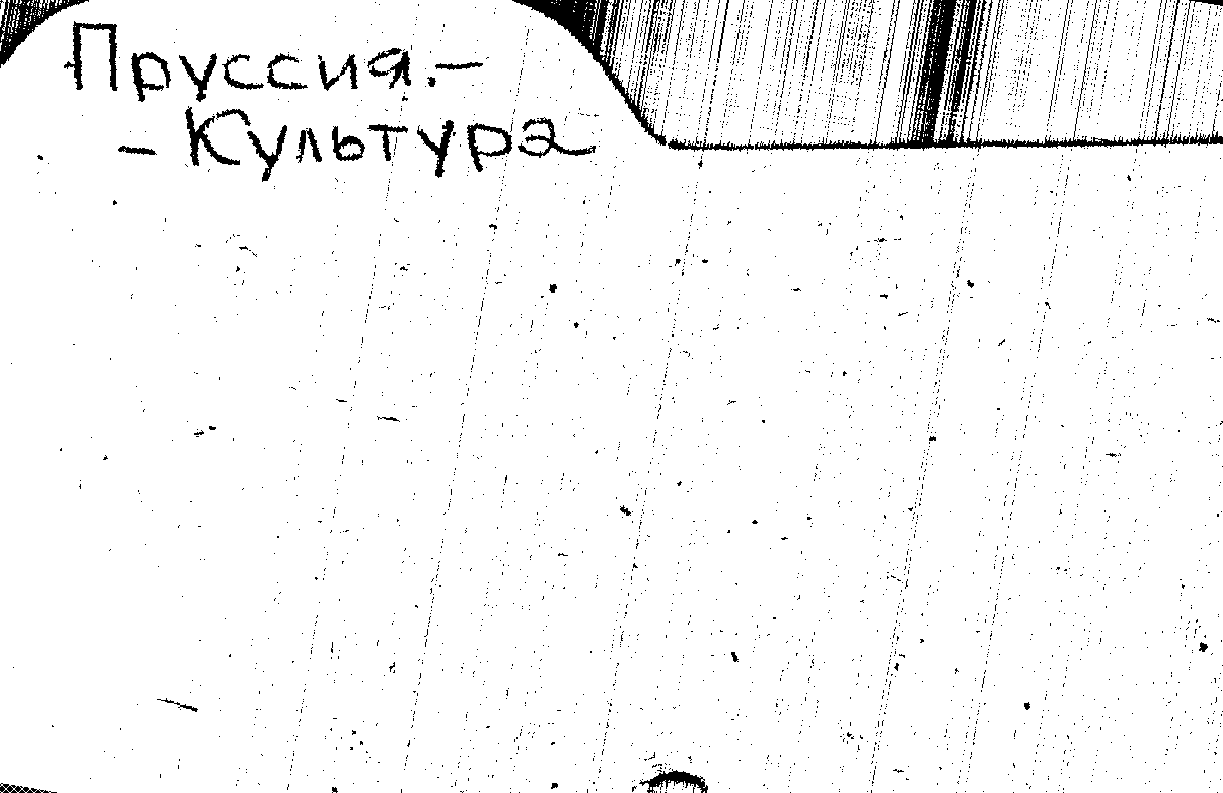 Пруссия.–
– Культура